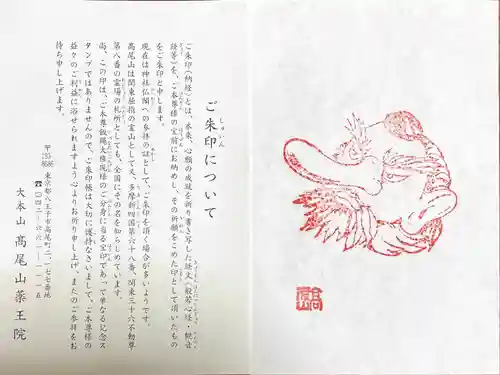 ご朱印について
ご朱印(納経)とは、本来、心願の成就を祈り書き写した経文(般若心経・観音
経等)を、ご本尊様の宝前にお納めし、その祈願をこめた印として頂いたもの
をご朱印と申します。
現在は神社仏閣への参拝の証として、ご朱印を頂く場合が多いようです。
高尾山は関東屈指の霊山として又、多摩新四国第六十八番、関東三十六不動尊
第八番の霊場の札所としても、全国にその名を知らしめています。
尚、この印は、ご本尊飯縄大権現様のご分身に当る宝印であって単なる記念ス
タンプではありませんので、ご朱印帳は大切に護持なさいまして、ご本尊様の
益々のご利益に浴せられますよう心よりお祈り申し上げ、またのご参拝をお
待ち申し上げます。
〒193-8686 東京都八王子市高尾町二一七七番地
☎〇四二-六六一-一一一五
大本山 高尾山薬王院